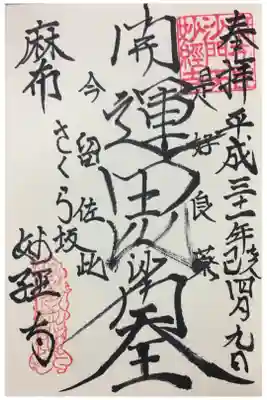 奉拝
平成三十一年己亥四月九日
是好良薬
開運毘沙門堂
今留在此
麻布
さくら坂
妙経寺